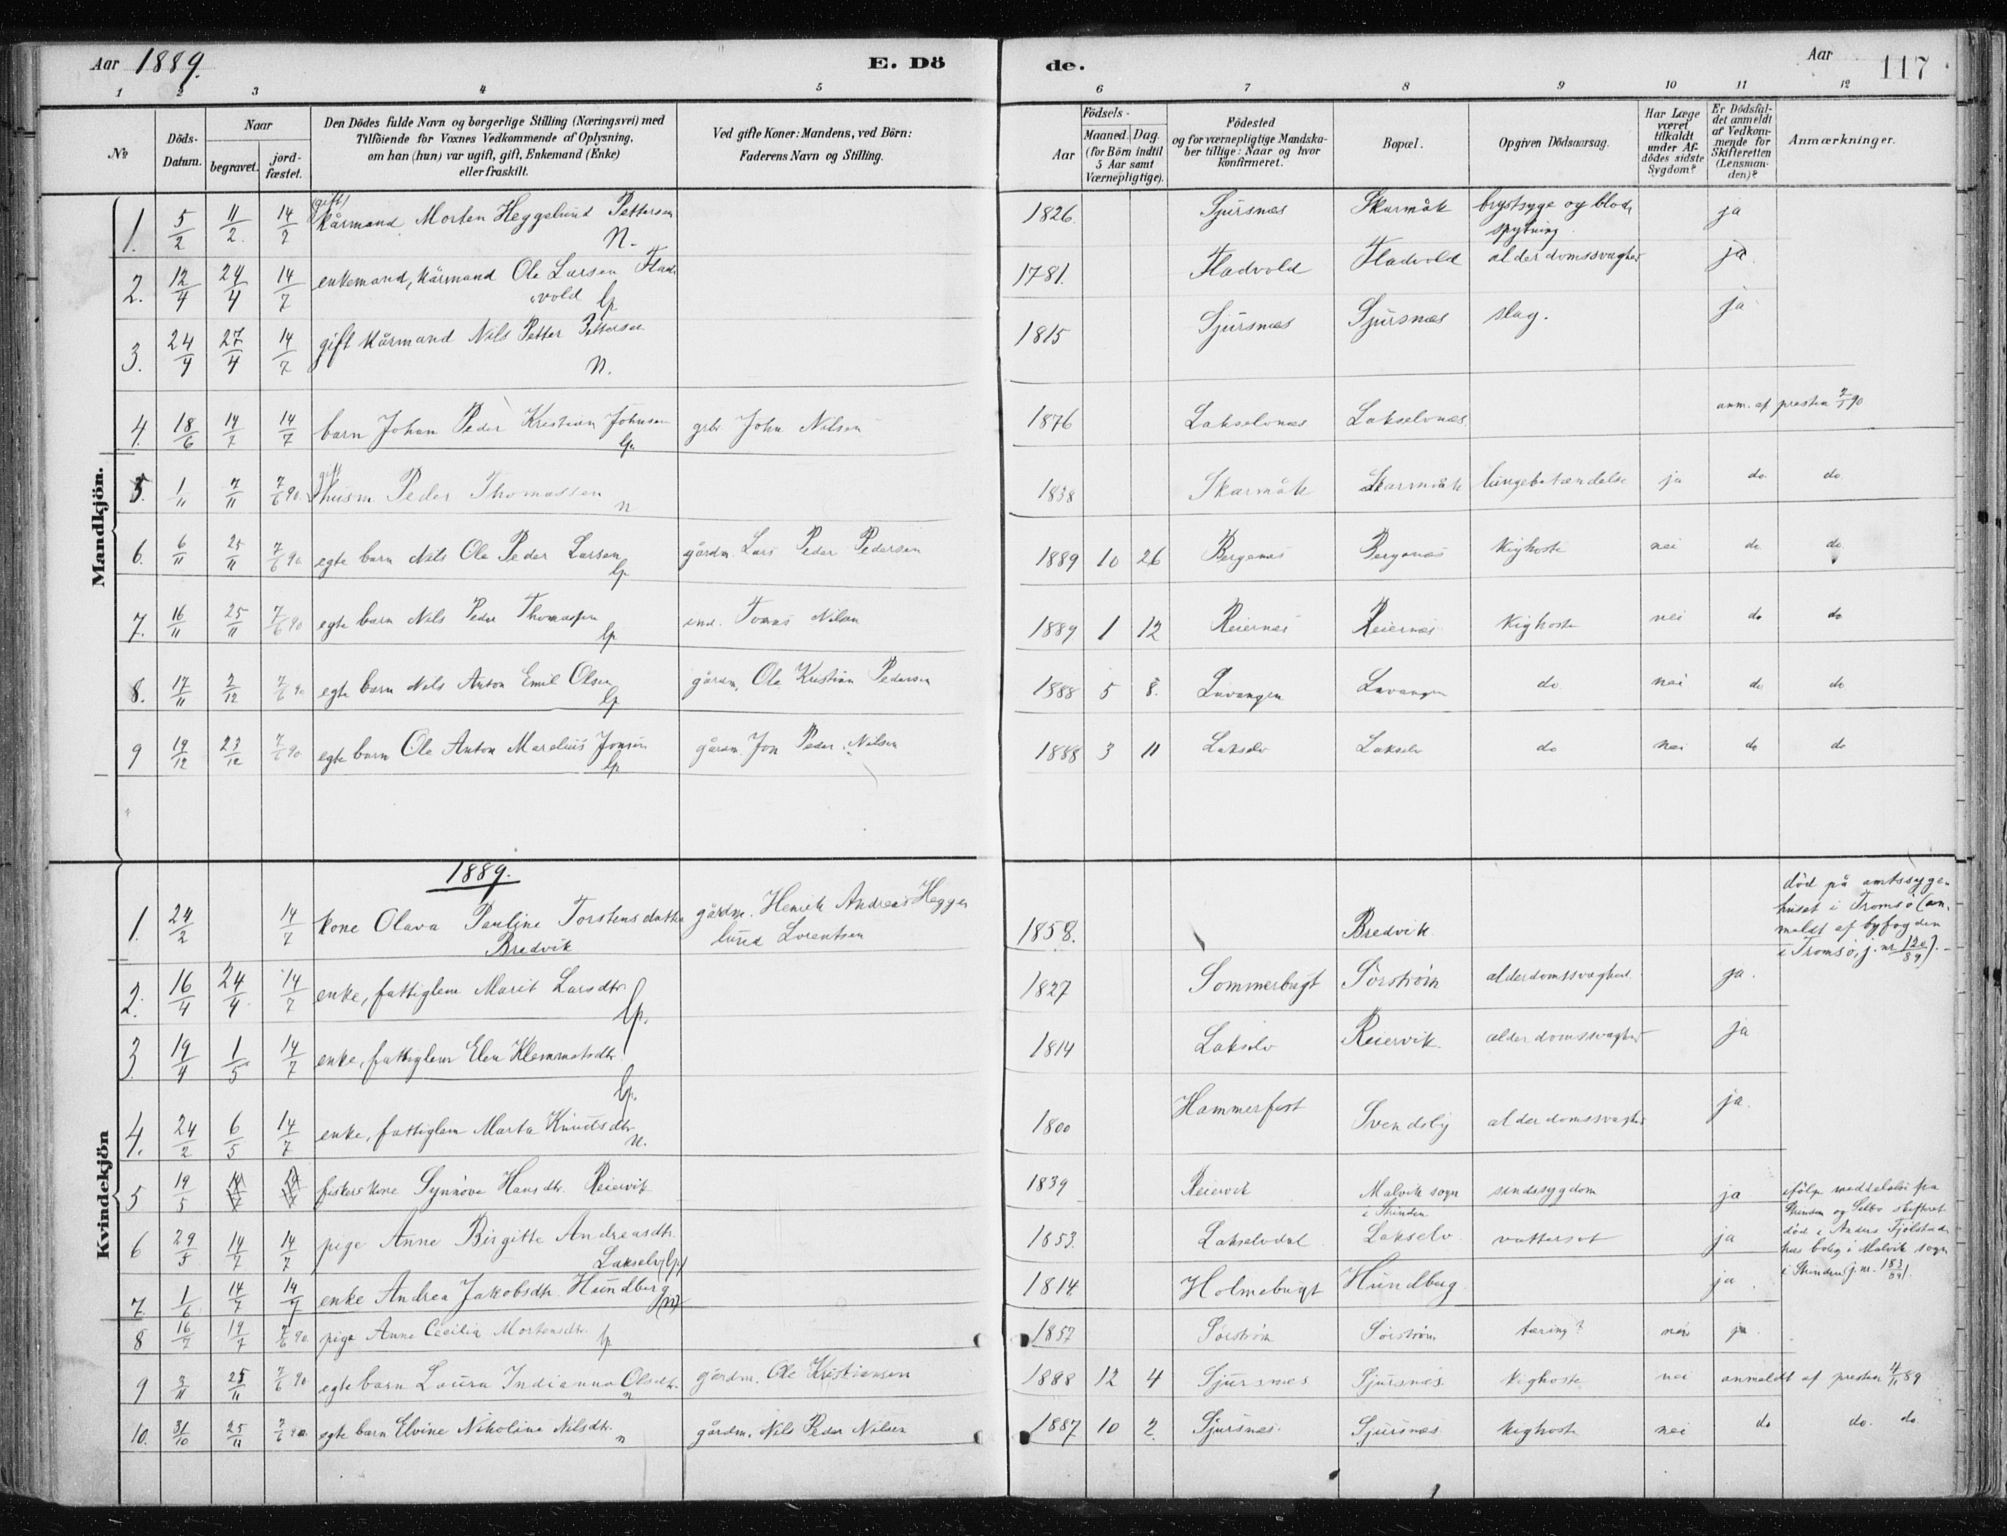 Aar 1889. E. Dö de. Aar 117
1 2 3 4 5 6 7 8 9 10 11 12
№
Döds-Datum.
Naar
begravet.
jordfæstet.
Den Dödes fulde Navn og borgerlige Stilling (Næringsvei) med
Tilföiende for Voxnes Vedkommende af Oplysning,
om han (hun) var ugift, gift, Enkemand (Enke)
eller fraskilt.
Ved gifte Koner: Mandens, ved Börn:
Faderens Navn og Stilling.
Födsels-
Aar
Maaned. Dag.
(for Börn indtil
5 Aar samt
Værnepligtige).
Födested
og for værnepligtige Mandskaber
tillige: Naar og hvor
konfirmeret.
Bopæl.
Opgiven Dödsaarsag.
Har Læge
været
tilkaldt
under Afdödes
sidste
Sygdom?
Er Dödsfaldet
anmeldt
af Vedkommende
for
Skifteretten
(Lensmanden)?
Anmærkninger.
Mandkjön.
1. 5/2 11/2 14/7 (gift) kårmand Morten Heggelund Pettersen N. 1826. Sjursnæs Skarmåk brystsyge og blodspytning. ja
2. 12/4 24/4 14/7 enkemand, kårmand Ole Larsen Fladvold lp. 1781. Fladvold Fladvold alderdomssvaghed ja.
3. 24/4 27/4 14/7 gift kårmand Nils Petter Pettersen N. 1815 Sjursnæs Sjursnæs slag. ja
4. 18/6 14/7 14/7 barn Johan Peder Kristian Johnsen lp. grbr. John Nilsen 1876 Lakselvnæs Lakselvnæs anm. af presten 90
5. 1/11 7/11 7/6 90. gift husm. Peder Thomassen n 1838 Skarmåk Skarmåk lungebetændelse ja do. do.
6. 6/11 25/11 7/6 90. egte barn Nils Ole Peder Larsen lp gårdm. Lars Peder Pedersen 1889 10 26 Bergenæs Bergenæs kighoste nei do. do.
7. 16/11 25/11 7/6 90 egte barn Nils Peder Thomassen lp ind. Tomas Nilsen 1889 1 12 Reiernæs Reiernæs kighoste nei do do
8. 17/11 2/12 7/6 90 egte barn Nils Anton Emil Olsen lp gårdm. Ole Kristian Pedersen 1888 5 8. Lavangen Lavangen do. nei do do
9 19/12 23/12 7/6 90 egte barn Ole Anton Marelius Jonsen lp gårdm. Jon Peder Nilsen 1888 3 11 Lakselv Lakselv do nei do do
1889.
Kvindekjön
1. 24/2 14/7 kone Olava Pauline Torstensdatter Bredvik gårdm. Henrik Andreas Heggelund Lorentsen 1858. Bredvik død på amtssygehuset i Tromsø (anmeldt af byfogden i Tromsø, j. nr 120/89).
2. 16/4 24/4 14/7 enke, fattiglem Marit Larsdtr. lp. 1827 Sommerbugt Sörström alderdomssvaghed. ja.
3. 19/4 1/5 14/7 enke, fattiglem Elen Klemmetsdtr. lp. 1814 Lakselv Reiervik. alderdomssvaghed ja
4. 24/2 6/5 14/7 enke, fattiglem Marta Knudsdtr. n. 1800 Hammerfest Svendsby alderdomssvaghed ja.
5 19/5 fiskers kone Synnöve Hansdtr. Reiervik 1839 Reiervik Malvik sogn i Strinden sindssygdom ja ifølge meddelelse fra Strinden og Selbo skifteret død i Anders Fjelstadnæs bolig i Malvik sogn i Strinden (j. nr. 183/89).
6 29/5 14/7 14/7 pige Anne Birgitte Andreasdtr. Lakselv (lp) 1853. Lakselvdal Lakselv vattersot ja
7. 1/6 14/7 14/7 enke Andrea Jakobsdtr. Hundberg (n) 1814 Holmebugt Hundberg. ja.
8 16/7 19/7 7/6 90 pige Anne Cecilia Mortensdtr. lp 1857 Sörström Sörström tæring? nei ja.
9 3/11 25/11 7/6 90 egte barn Laura Indianna Olsdtr. n gårdm. Ole Kristiansen 1888 12 4 Sjursnæs Sjursnæs. kighoste nei anmeldt af presten 4/11 89
10. 31/10 25/11 7/6 90 egte barn Elvine Nikoline Nilsdtr. n gårdm. Nils Peder Nilsen 1887 10 2. Sjursnæs. Sjursnæs. kighoste nei do do. do.